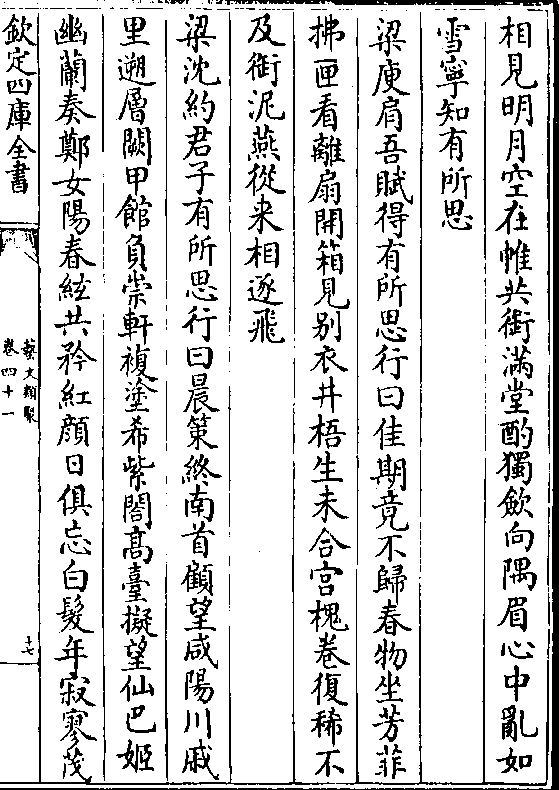 相見明月空在帷共銜滿堂酌獨歛向隅眉心中亂如
雪寧知有所思
梁庾肩吾賦得有所思行曰佳期竟不歸春物坐芳菲
拂匣看離扇開箱見别衣井梧生未合宫槐卷復稀不
及銜泥燕從来相逐飛
梁沈約君子有所思行曰晨策終南首顧望咸陽川戚
里遡層闕甲館負崇軒複塗希紫閣髙臺擬望仙巴姬
幽蘭奏鄭女陽春絃共矜紅顔日俱忘白髮年寂寥茂
欽定四庫全書
藝文類聚
卷四十一
十七